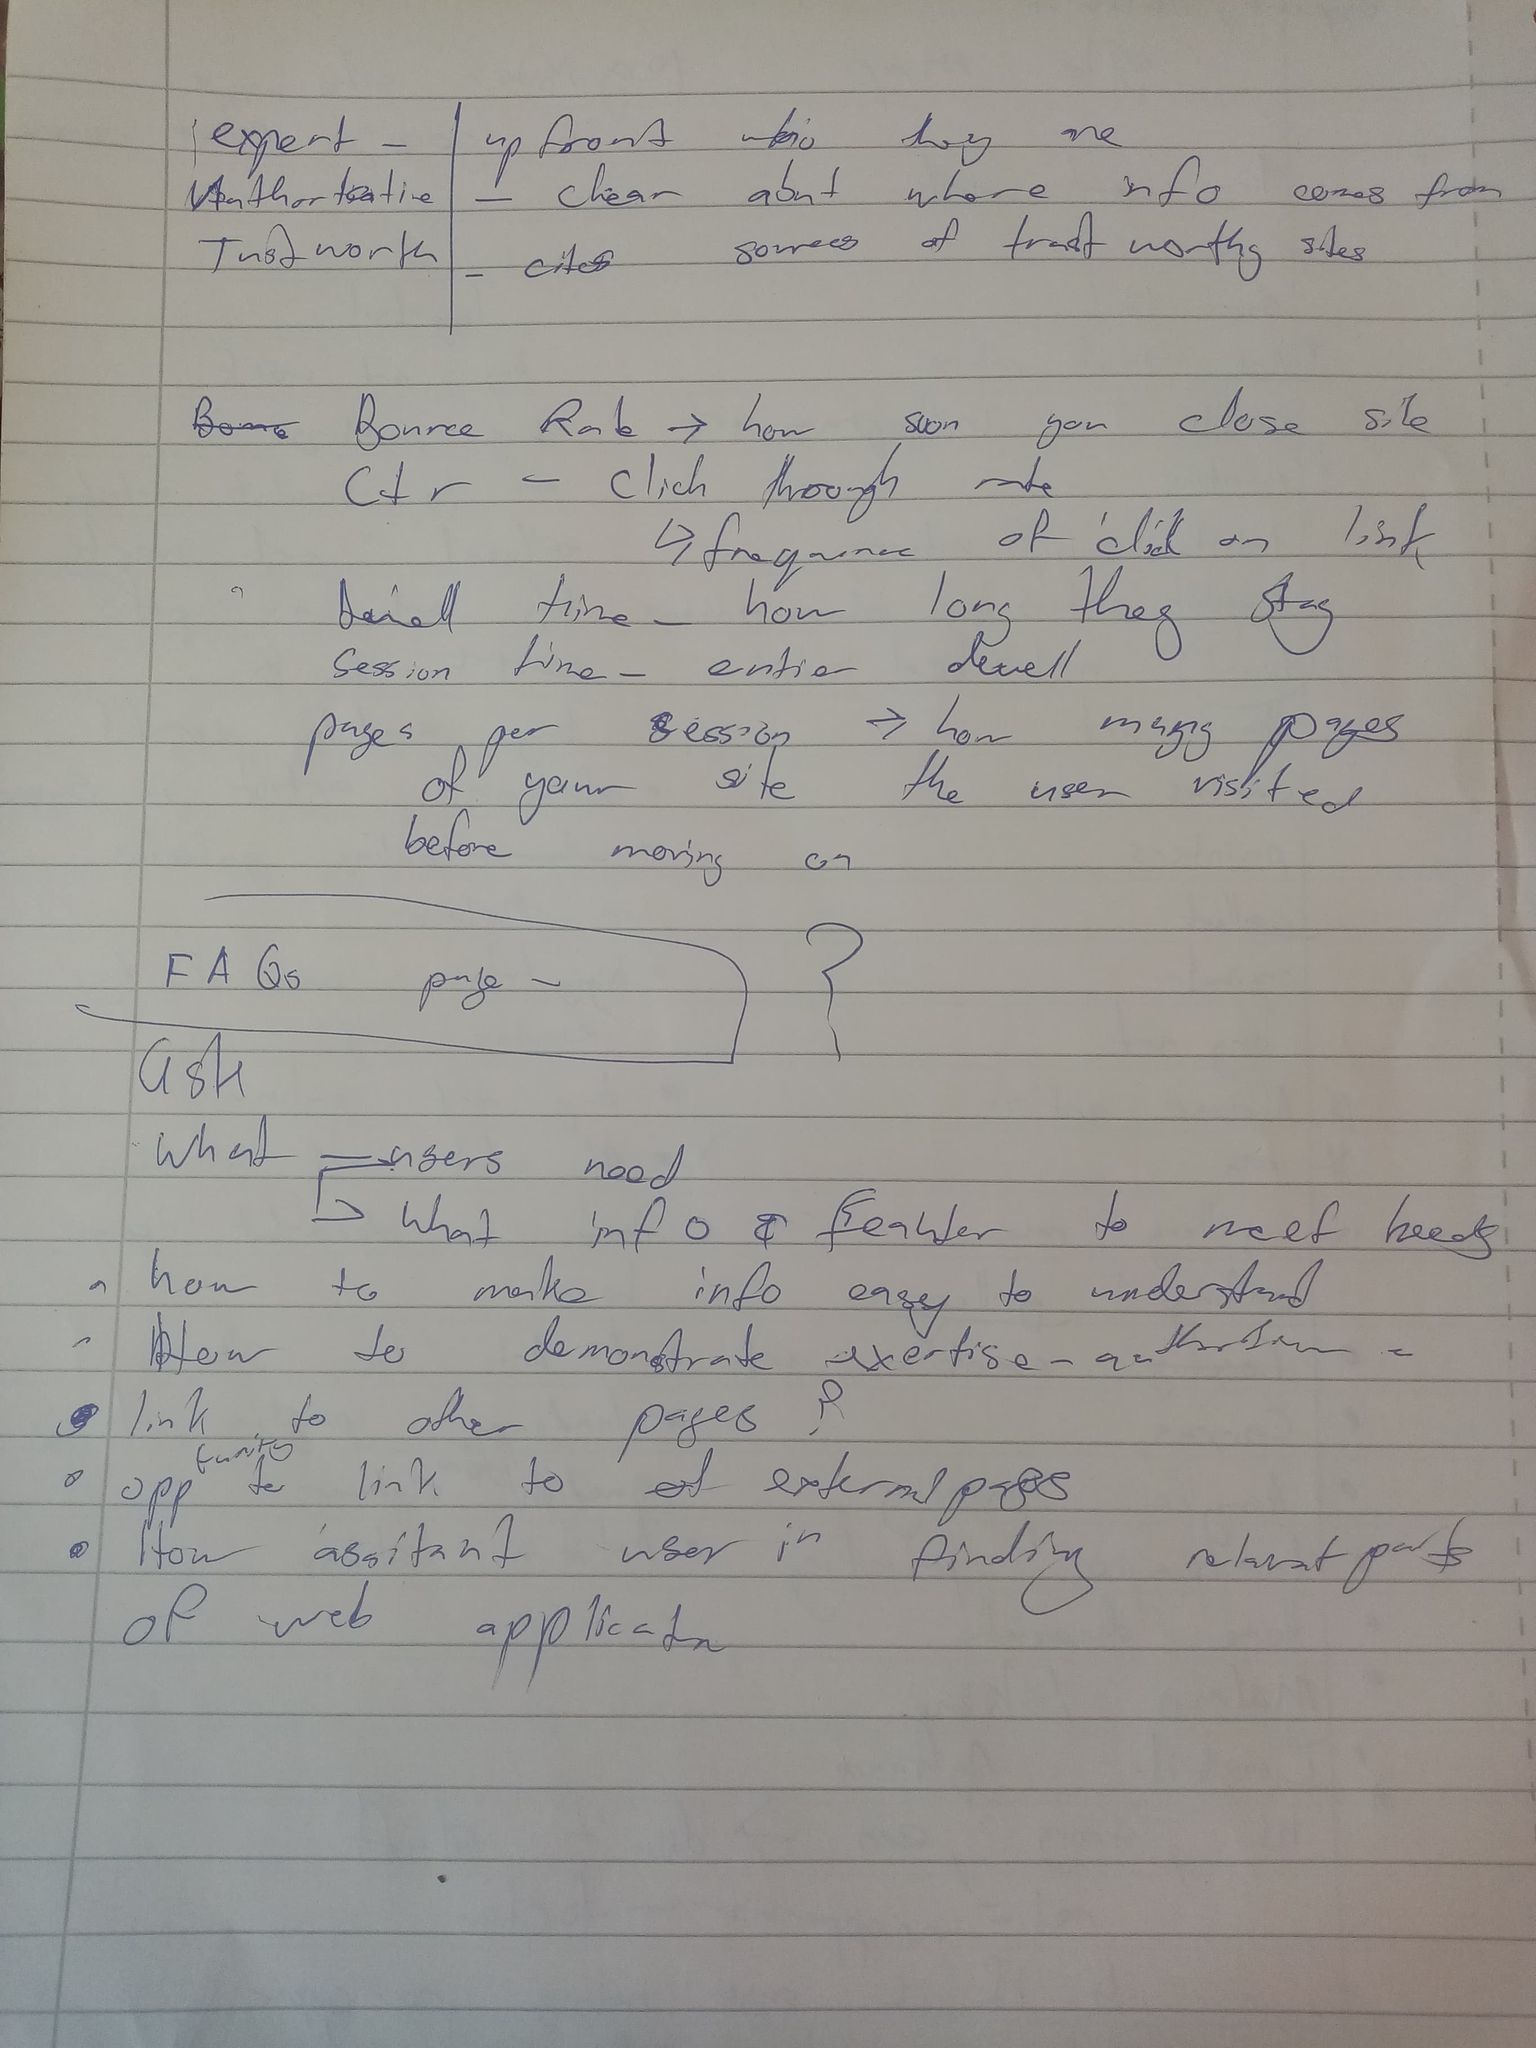 expert - | upfront who they are
Authortative | - clear abut where info comes from
Trustworth | - cites sources of trust worthy sites
Bounce Rate → how soon you close site
Ctr - Click through rate
↳ frequence of click on link
time - how long they stay
session time - entier dwell
pages per session → how many pages
of your site the user visited
before moving on
FAQs page - ?
ask
What users need
↳ What info & to meet needs
how to make info easy to understand
How to demonstrate exertise -
link to other pages ?
opptunity to link to external pages
How assitant user in finding relevant parts
of web